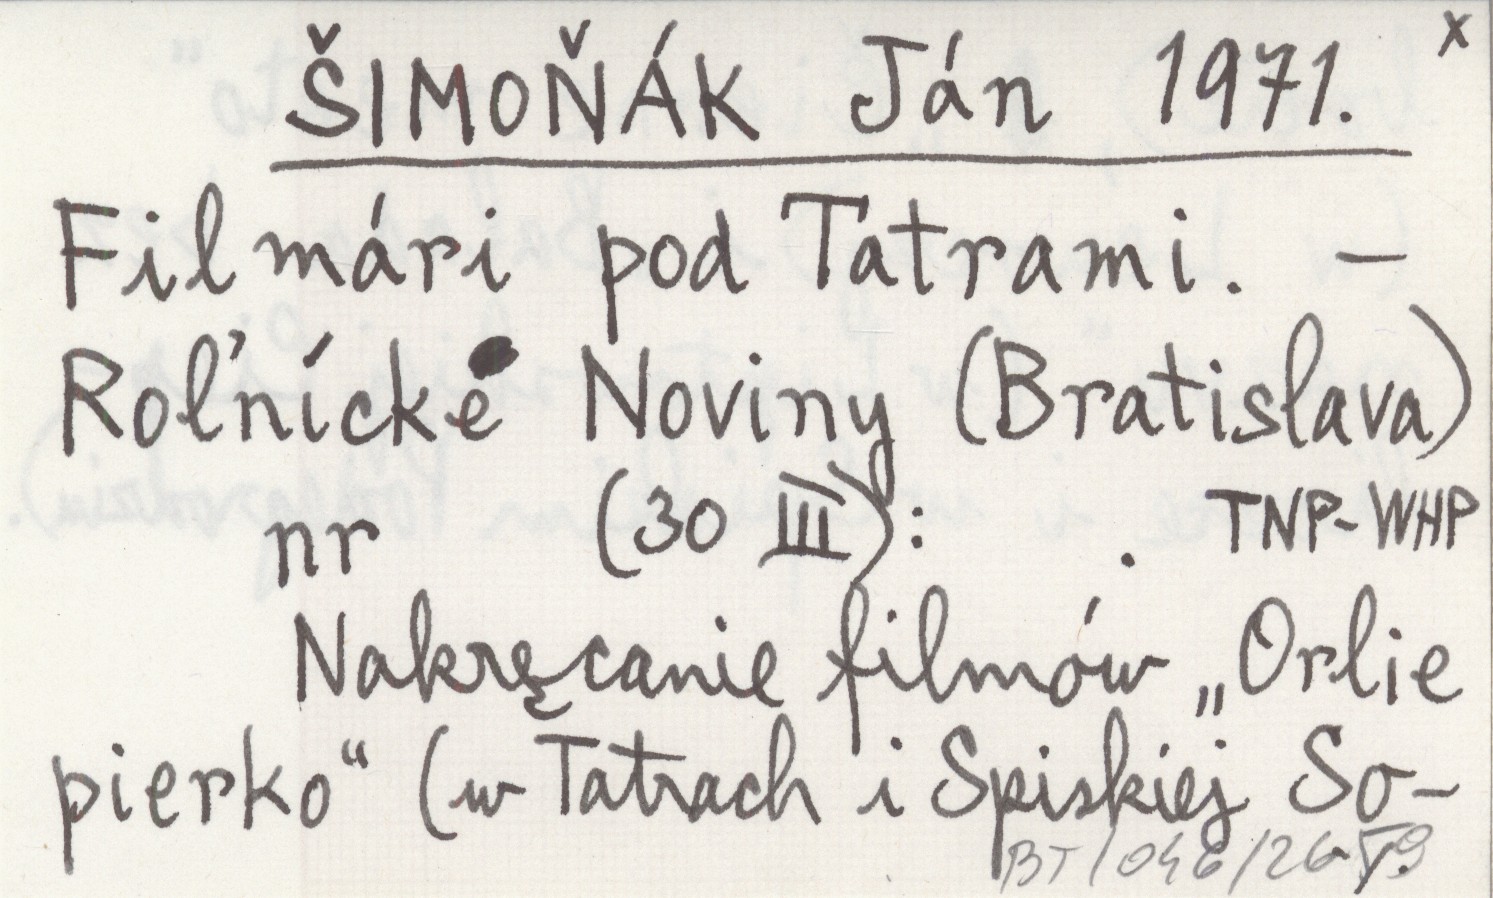 x
ŠIMOŇÁK Ján 1971.
Filmári pod Tatrami. —
Roľnícke Noviny (Bratislava)
nr (30 III): . TNP-WHP
Nakręcanie filmów „Orlie
pierko“ (w Tatrach i Spiskiej So-
BT/046/26